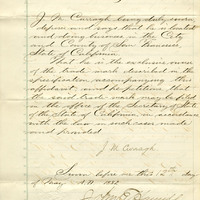 J. M. Curragh being duly sworn
deposes and says that he is located
and doing business in the City
and County of San Francisco,
State of California
That he is the exclusive owner
of the trade mark described in the
specification accompanying this
affidavit and he petitions that
the said trade mark may be filed
in the office of the Secretary of State
of the State of California in accordance
with the law in such case made
and provided
J. M. Curragh
Sworn before me this 12th day
of May A.D. 1882